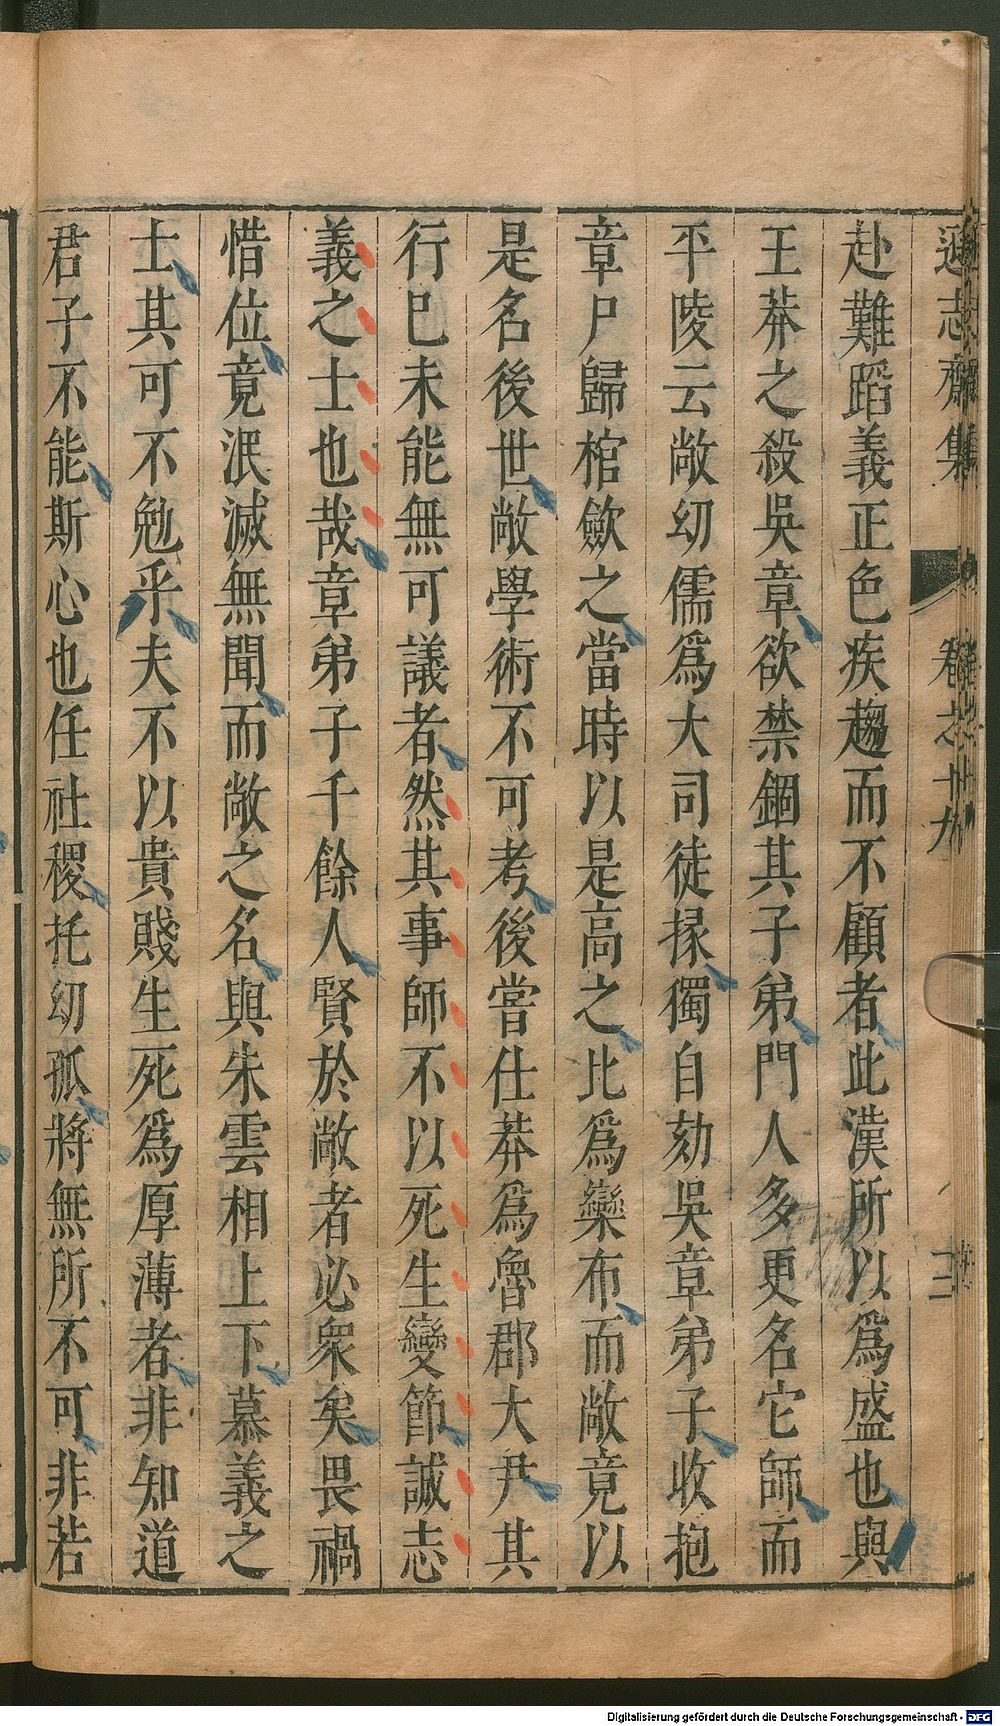 遜志齋集 卷之十九 二
赴難蹈義正色疾趨而不顧者此漢所以爲盛也與
王莽之殺吳章欲禁錮其子弟門人多更名它師而
平陵云敞幼儒爲大司徒掾獨自劾吳章弟子收抱
章尸歸棺歛之當時以是高之比爲欒布而敞竟以
是名後世敞學術不可考後嘗仕莽爲魯郡大尹其
行巳未能無可議者然其事師不以死生變節誠志
義之士也哉章弟子千餘人賢於敞者必衆矣畏禍
惜位竟泯滅無聞而敞之名與朱雲相上下慕義之
士其可不勉乎夫不以貴賤生死爲厚薄者非知道
君子不能斯心也任社稷托幼孤將無所不可非若
Digitalisierung gefördert durch die Deutsche Forschungsgemeinschaft - DFG